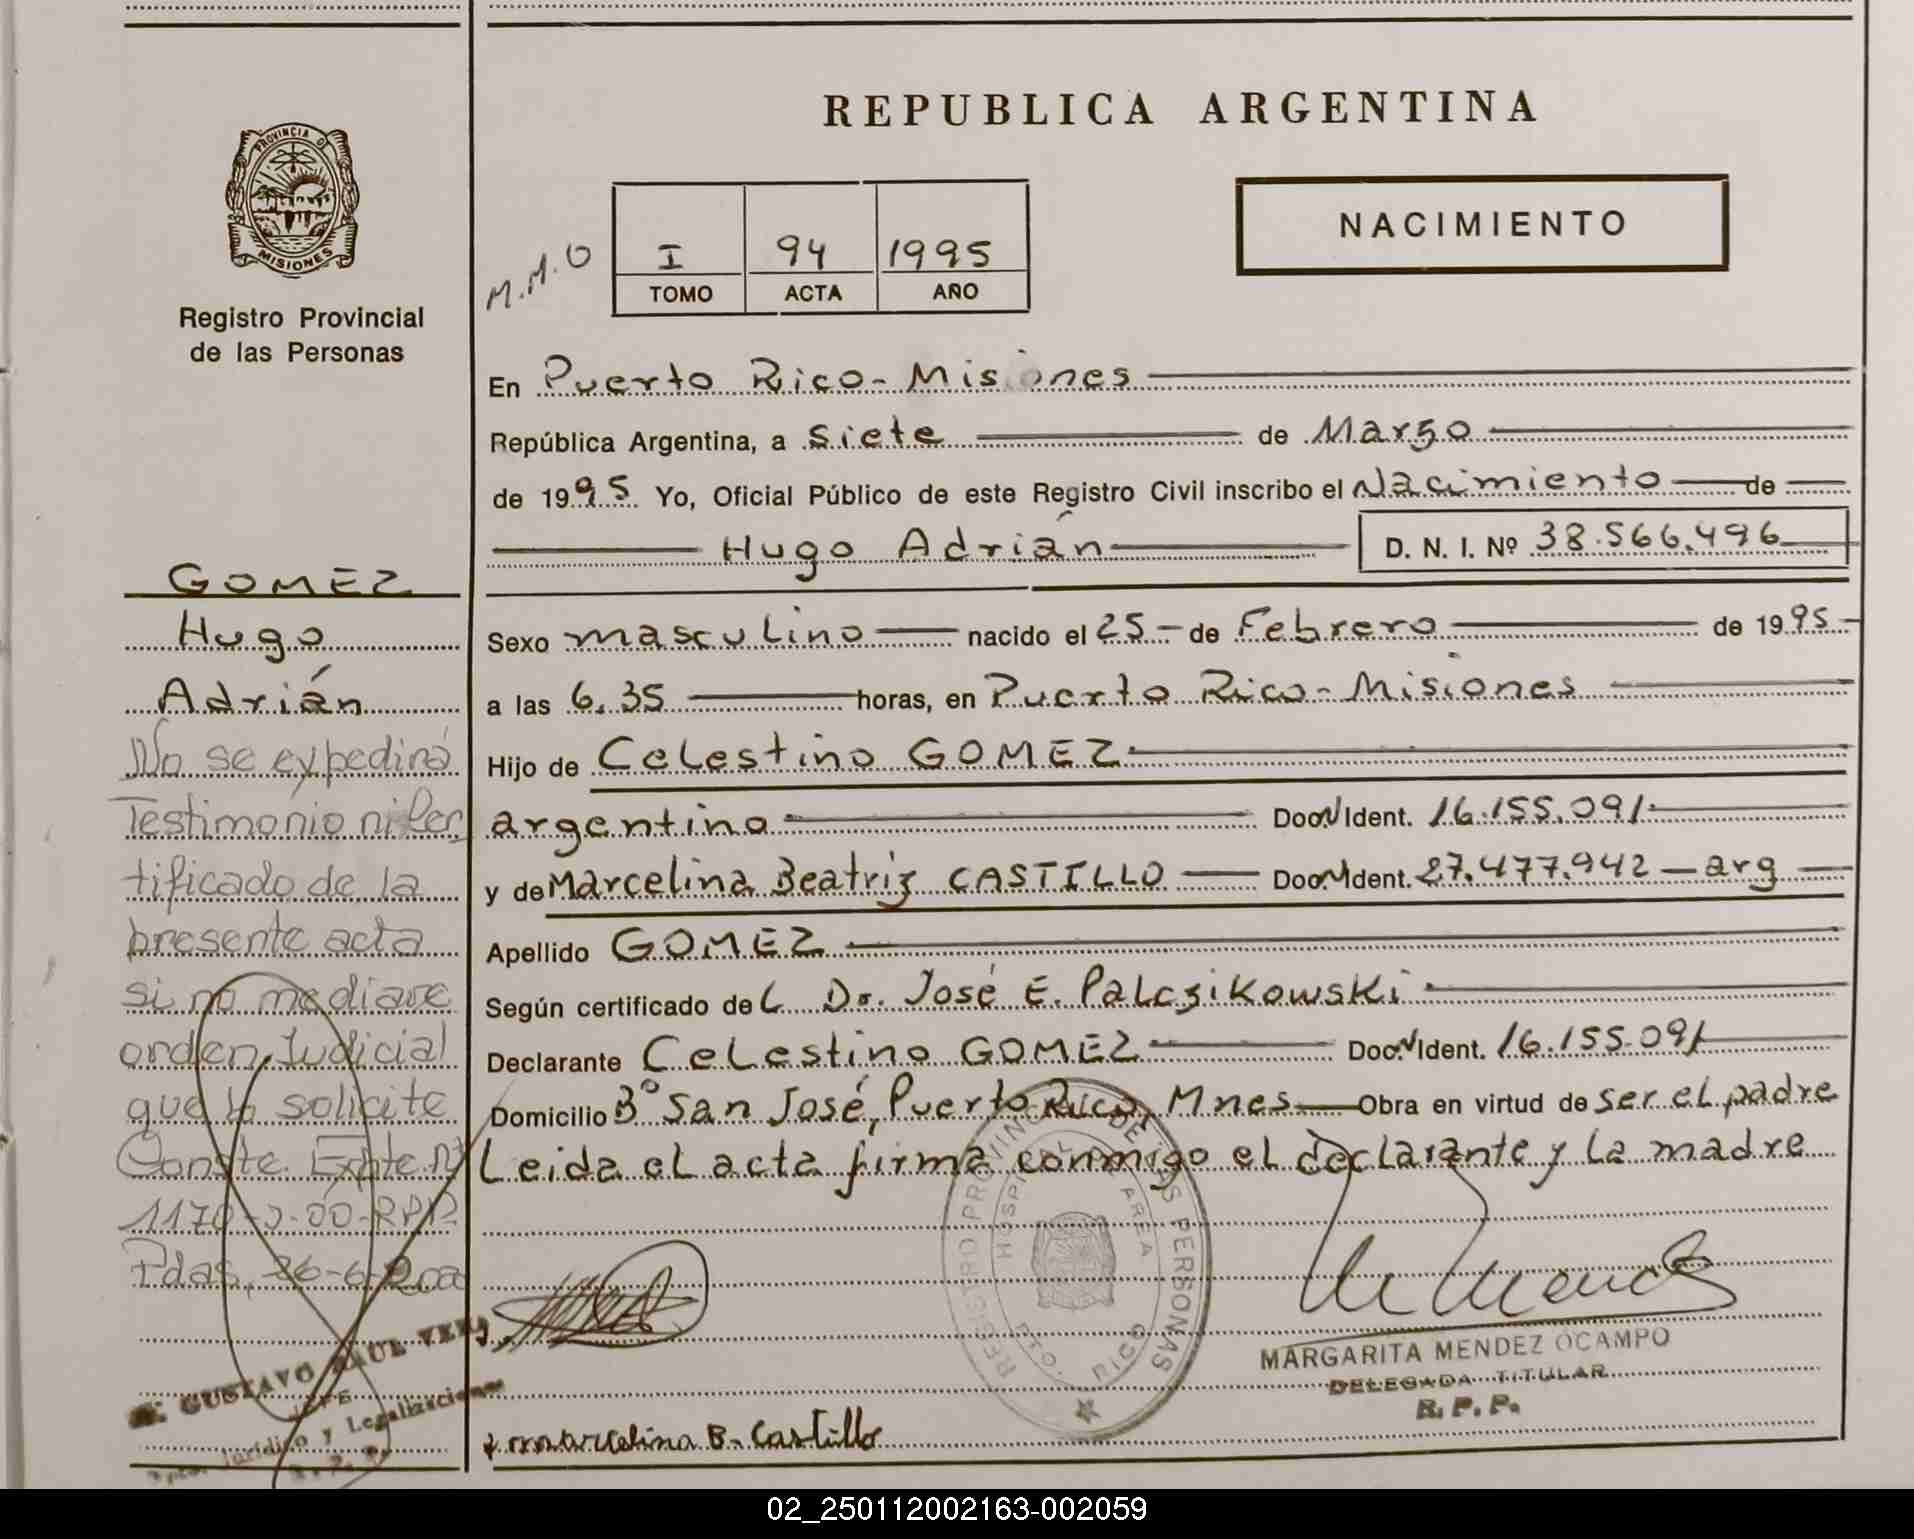 REPUBLICA ARGENTINA
PROVINCIA D
MISIONES
Registro Provincial
de las Personas
NACIMIENTO
M.M.O
I 94 1995
TOMO ACTA AÑO
En Puerto Rico - Misiones
República Argentina, a siete de Marzo
de 1995 Yo, Oficial Público de este Registro Civil inscribo el Nacimiento de
Hugo Adrián D. N. I. Nº 38.566.496
GOMEZ
Hugo
Adrián
No se expedirá
Testimonio ni Cer
tificado de la
presente acta
si no mediare
orden Judicial
que lo solicite
Conste. Expte Nº
Pdas, 26-6-2000
GUSTAVO RAUL VERA
JEFE
Dpto. Jurídico y Legalizaciones
R. P. P.
Sexo masculino nacido el 25 - de Febrero de 1995
a las 6,35 horas, en Puerto Rico - Misiones
Hijo de Celestino GOMEZ
argentino Doc.N Ident. 16.155.091
y de Marcelina Beatriz CASTILLO Doc.N Ident. 27.477.942 - arg
Apellido GOMEZ
Según certificado del Dr. José E. Palczikowski
Declarante Celestino GOMEZ Doc.N Ident. 16.155.091
Domicilio Bº San José, Puerto Rico, Mnes Obra en virtud de ser el padre
Leida el acta firma conmigo el declarante y la madre
REGISTRO PROVINCIAL DE LAS PERSONAS
HOSPITAL DE AREA
PTO. RICO
MARGARITA MENDEZ OCAMPO
DELEGADA TITULAR
R. P. P.
marcelina B. Castillo
02_250112002163-002059